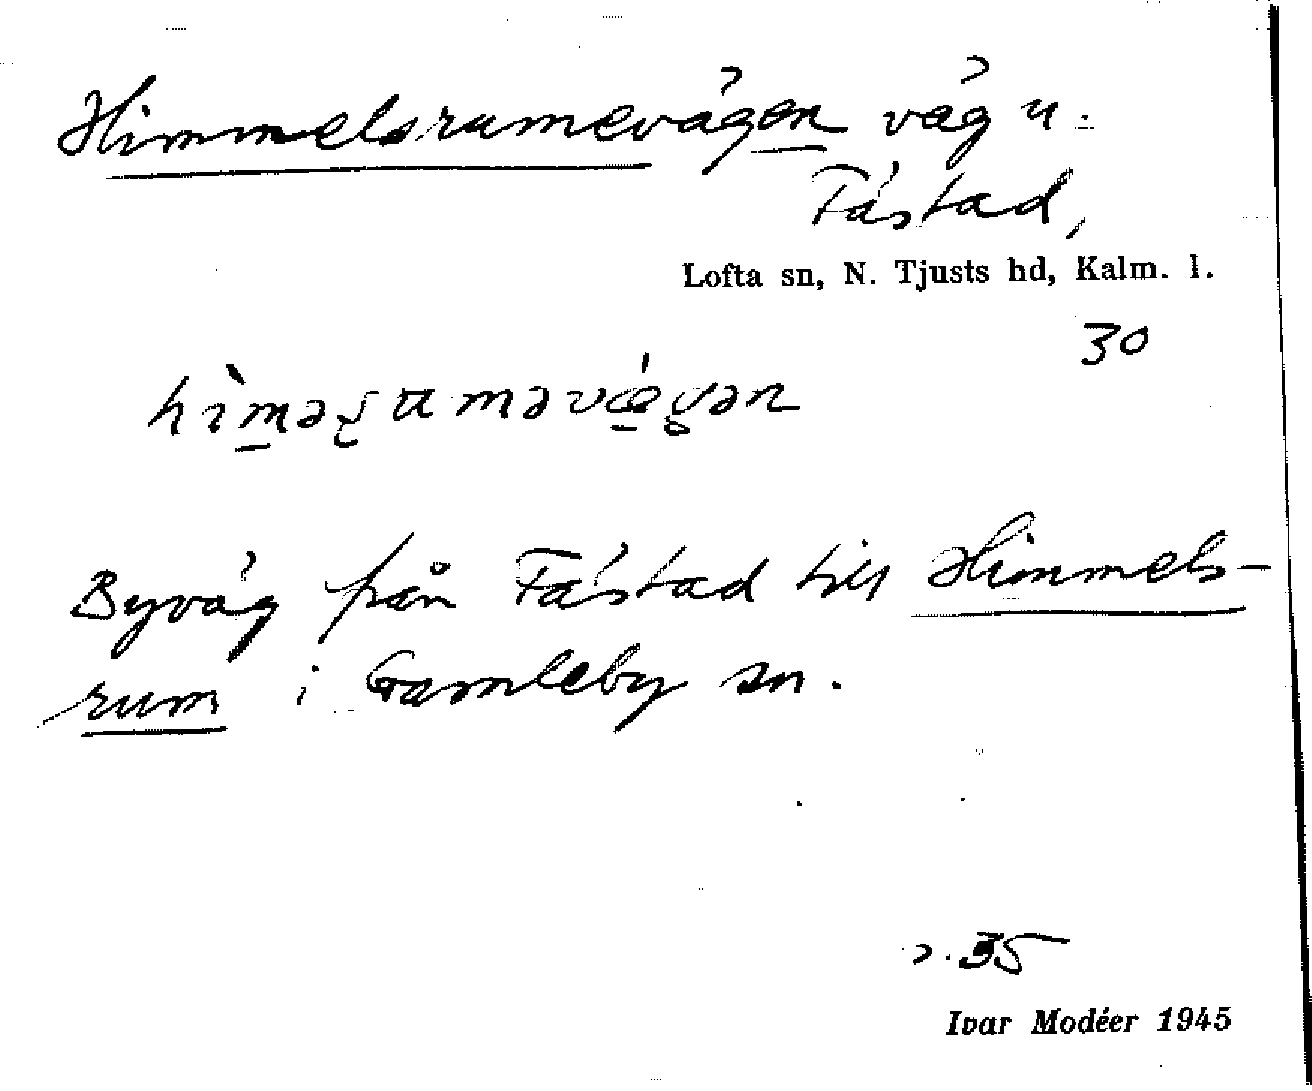 Himmelsrumevägen väg u.
Fästad,
Lofta sn, N. Tjusts hd, Kalm. l.
30
Byväg från Fästad till Himmels-
rum i Gamleby sn.
35
Ivar Modéer 1945